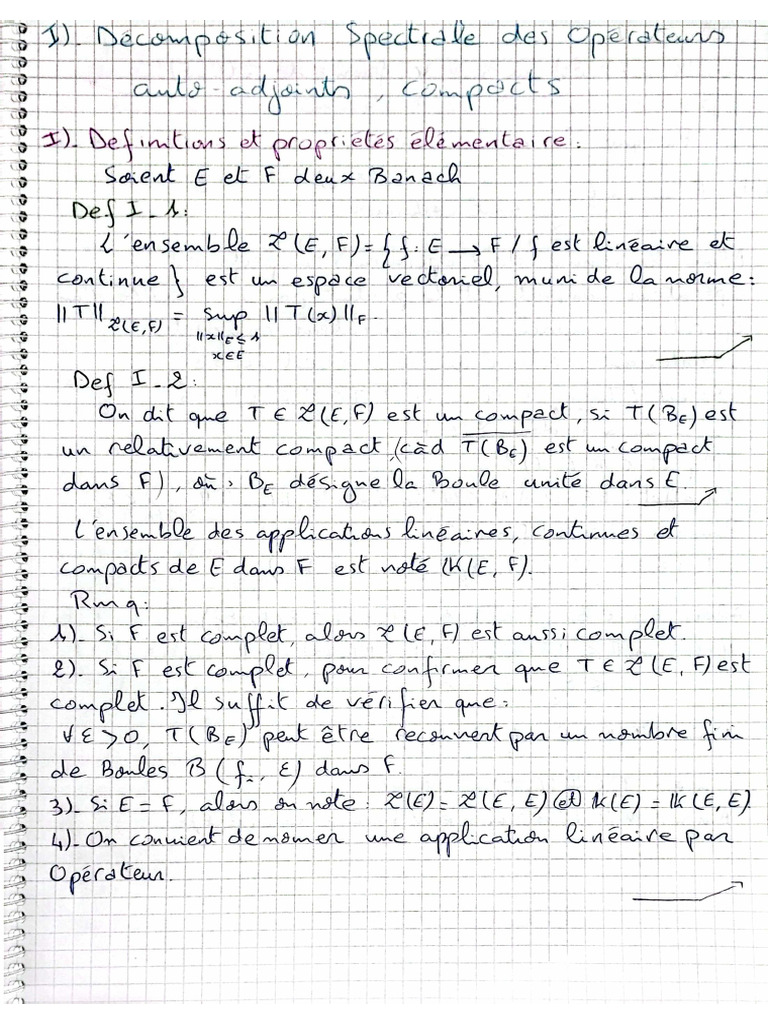 I). Décomposition Spectrale des Opérateurs
auto-adjoints, compacts
I). Definitions et propriétés élémentaire :
Soient E et F deux Banach
Def I-1:
L'ensemble ℒ(E, F) = { f : E → F / f est linéaire et
continue } est un espace vectoriel, muni de la norme :
||T||ℒ(E,F) = sup ||T(x)||F.
||x||E ≤ 1
x∈E
Def I-2:
On dit que T ∈ ℒ(E,F) est un compact, si T(BE) est
un relativement compact (càd T(BE)‾ est un compact
dans F), où, BE désigne la Boule unité dans E.
L'ensemble des applications linéaires, continues et
compacts de E dans F est noté 𝕂(E, F).
Rmq:
1). Si F est complet, alors ℒ(E, F) est aussi complet.
2). Si F est complet, pour confirmer que T ∈ ℒ(E, F) est
complet. Il suffit de vérifier que :
∀ε>0, T(BE) peut être recouvert par un nombre fini
de Boules B(fi, ε) dans F.
3). Si E = F, alors on note : ℒ(E) = ℒ(E, E) et 𝕂(E) = 𝕂(E, E)
4). On convient de nomer une application linéaire par
Opérateur.